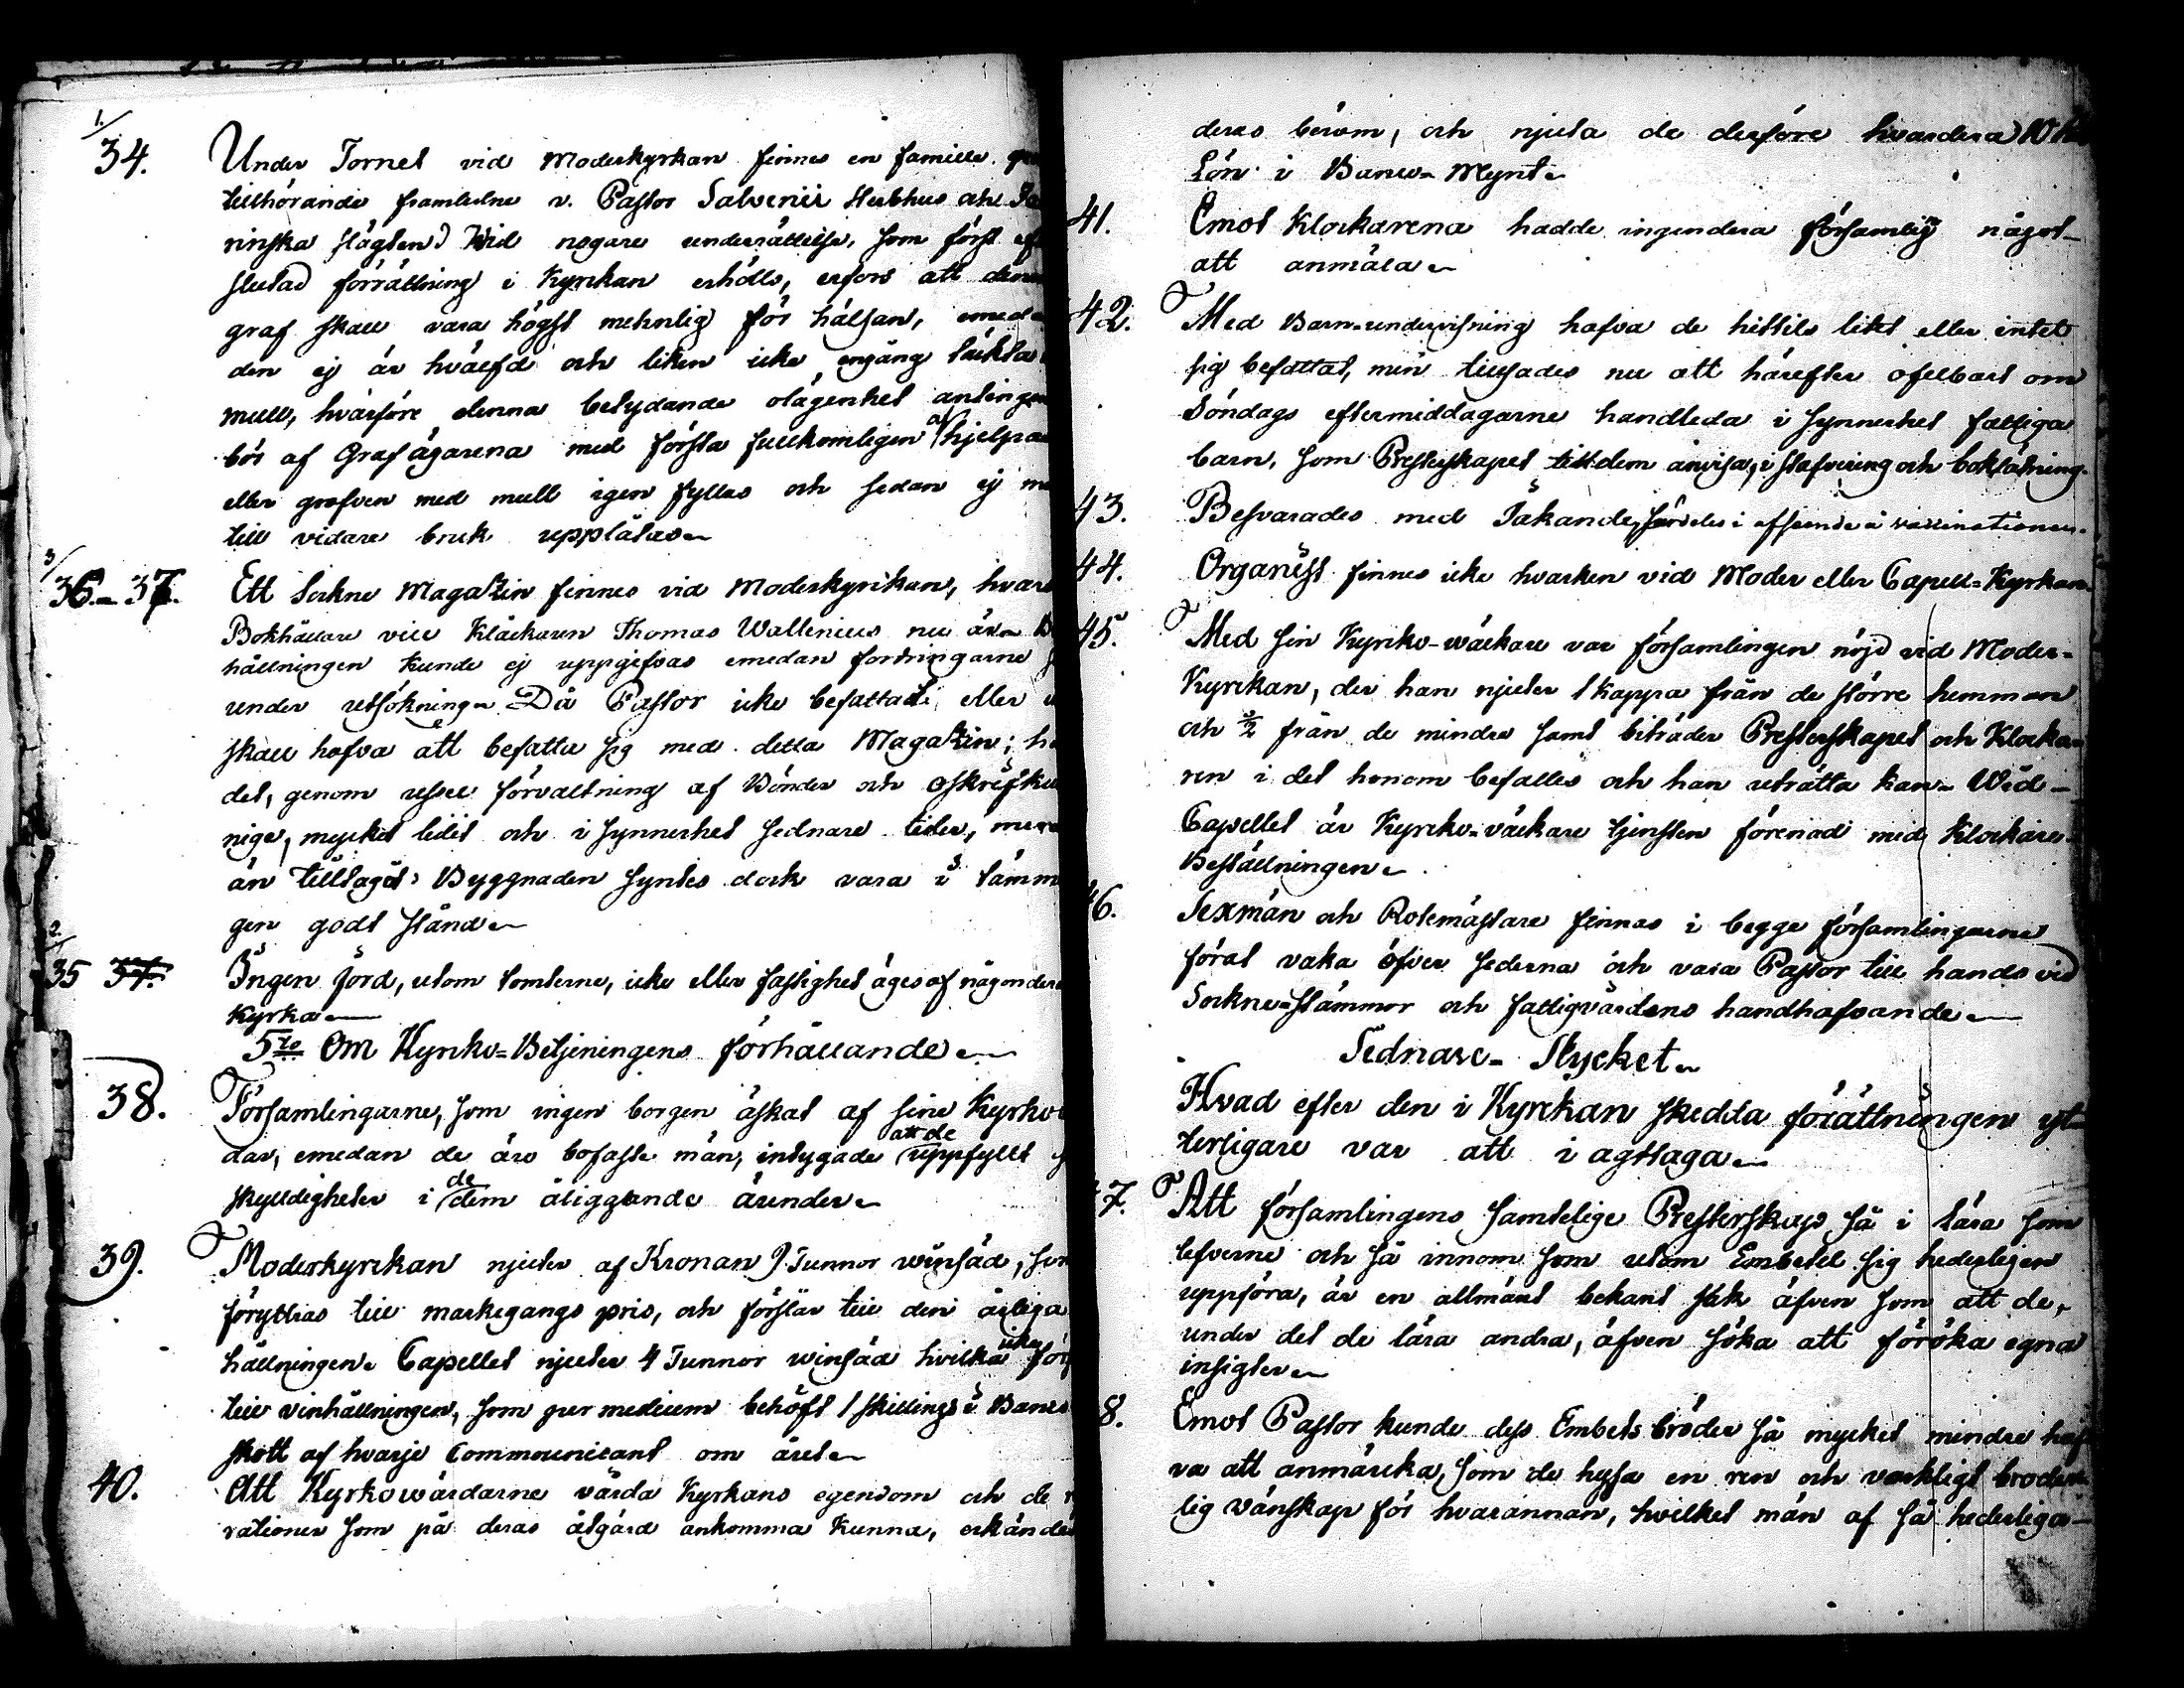 1.
34. Under Tornet vid Moderkyrkan finnes en famille
tillhörande framledne v. Pastor Salvenii Sterbhus och
ninska slägten. Wid nogare underrättelse, som först
slutad förrättning i Kyrkan erhölls, erfors att
graf skall vara högst mehnlig för hälsan,
den ej är hvälfd och liken icke engång täckta
mull, hvarföre denna betydande olägenhet antingen
bör af Grafägarena med första fullkomligen afhjelpas
eller grafven med mull igen fyllas och sedan ej
till vidare bruk upplåtas
3/
36.-37. Ett Sockne Magatzin finnes vid Moderkyrkan,
Bokhållare vice Kläckaren Thomas Wallenius nu är
hållningen kunde ej uppgifvas emedan fordringarne
under utsökning. Då Pastor icke befattadt eller
skall hafva att befatta sig med detta Magatzin;
det, genom ussel förvaltning af Bönder och oskrifku
nige, mycket lidit och i synnerhet sednare tider,
än tilltagit. Byggnaden syntes dock vara i tämm
gen godt stånd
2.
35 37. Ingen jord, utom tomterne, icke eller fastighet äges af någondera
Kyrka
5to Om Kyrko-Betjeningens förhållande
38. Församlingarne, som ingen borgen äskat af sine Kyrko
dar, emedan de äro bofaste män, intygade att de uppfyllt
skylldigheter i de dem åliggande ärender
39. Moderkyrkan njuter af Kronan 9 Tunnor winsäd,
föryttras till markegangs pris, och förslår till den årliga
hållningen. Capellet njuter 4 Tunnor winsäd hvilka icke
till vinhållningen, som per medium behöft 1 skillings i Banco
skott af hvarje Communicant om året
40. Att Kyrkowärdarne vårda Kyrkans egendom och de
rationer som på deras åtgärd ankomma kunna,
deras beröm, och njuta de derföre hvardera 10
Lön i Banco-Mynt
41. Emot Klockarena hadde ingendera församling något
att anmäla
42. Med Barn-undervisning hafva de hittils litet eller intet
sig befattat, men tillsades nu att härefter ofelbart om
Söndags eftermiddagarne handleda i synnerhet fattiga
barn, som Presterskapet till dem anvisa, i stafvning och bokläsning.
43. Besvarades med Jakande, särdeles i afseende å vaccinationen.
44. Organist finnes icke hvarken vid Moder eller Capell-Kyrkan.
45. Med sin Kyrko-wäckare var församlingen nöjd vid Moder-
Kyrkan, der han njuter 1 kappa från de större hemman
och ½ från de mindre samt biträder Presterskapet och Klocka-
ren i det honom befalles och han uträtta kan. Wid
Capellet är Kyrko-väckare tjensten förenad med Klockare-
Beställningen
46. Sexmän och Rotemästare finnas i begge församlingarne
föratt vaka öfver sederna och vara Pastor till hands vid
Sockne-stämmor och fattigvårdens handhafvande
Sednare Stycket
Hvad efter den i Kyrkan skedda förättningen yt-
terligare var att i agttaga
47. Att församlingens samtelige Presterskap så i lära som
lefverne och så innom som utom Embetet sig hederligen
uppföra, är en allmänt bekant sak äfven som att de,
under det de lära andra, äfven söka att föröka egna
insigter
8. Emot Pastor kunde dess Embets bröder så mycket mindre haf
va att anmärcka, som de hysa en ren och verkligt broder-
lig wänskap för hvarannan, hvilket män af så hederliga